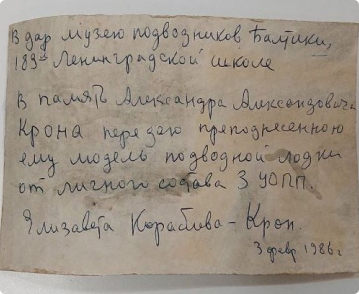 В дар музею подводников Балтики,
189й Ленинградской школе
В память Александра Александровича
Крона передаю преподнесенную
ему модель подводной лодки
от личного состава 3 УОПП.
Елизавета Корабова - Крон.
3 февр 1986г